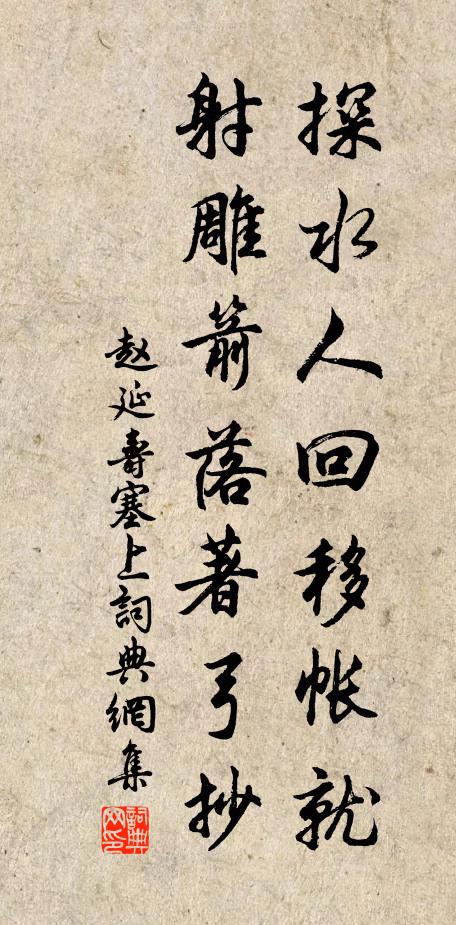 探水人回移帐就
射雕箭落著弓抄
赵延寿塞上詞典網集
詞典網印